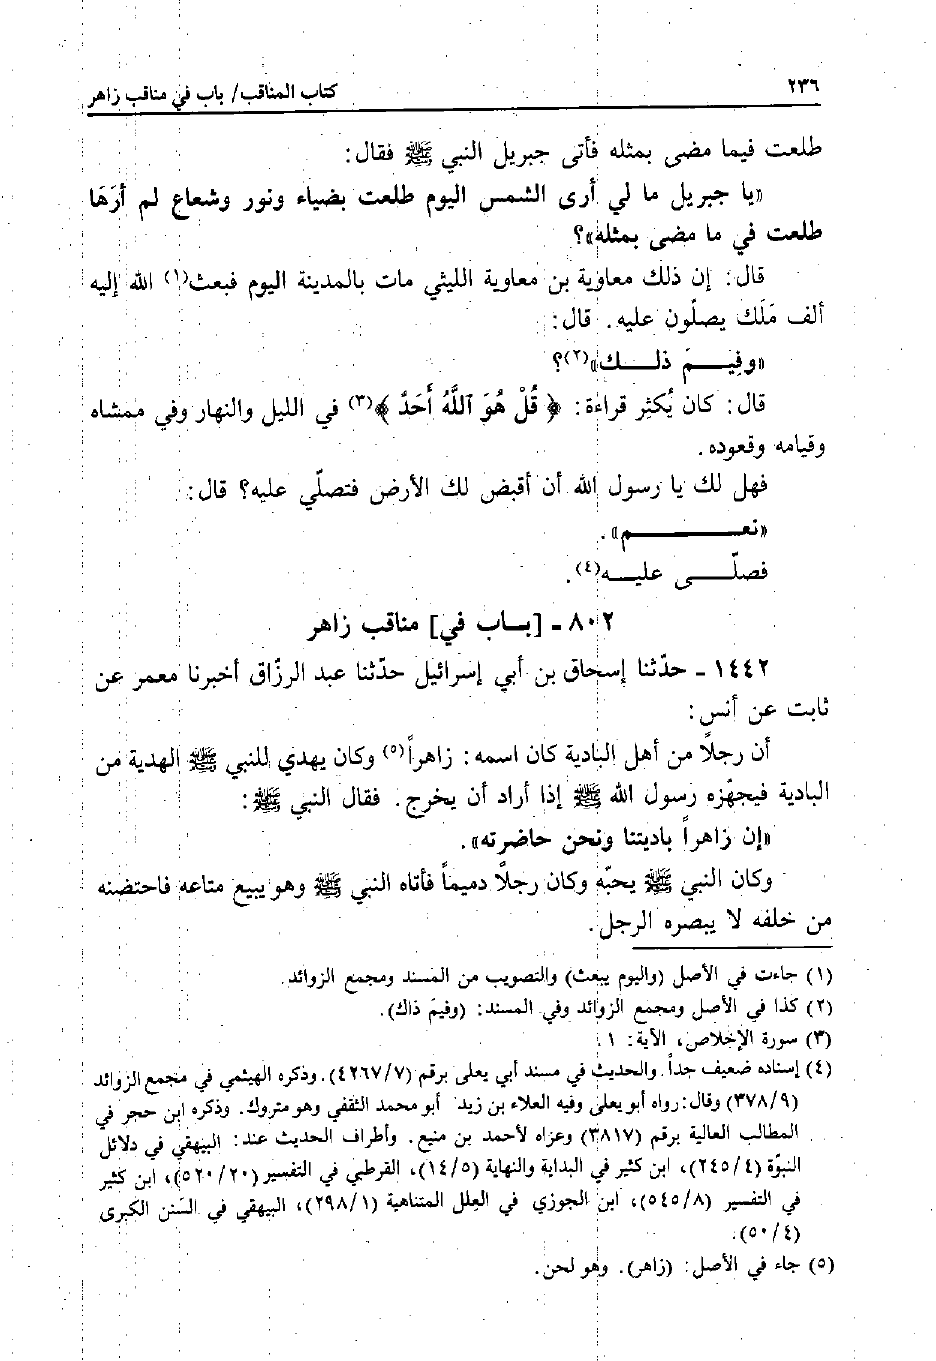 ٢٣٦
كتاب المناقب/ باب في مناقب زاهر
طلعت فيما مضى بمثله فأتى جبريل النبي ﷺ فقال:
«يا جبريل ما لي أرى الشمس اليوم طلعت بضياء ونور وشعاع لم أرَهَا
طلعت في ما مضى بمثله»؟
قال: إن ذلك معاوية بن معاوية الليثي مات بالمدينة اليوم فبعث(١) الله إليه
ألف مَلَك يصلّون عليه. قال:
«وفِيـــمَ ذلـــك»(٢)؟
قال: كان يُكثِر قراءة: ﴿ قُلْ هُوَ ٱللَّهُ أَحَدٌ ﴾(٣) في الليل والنهار وفي ممشاه
وقيامه وقعوده.
فهل لك يا رسول الله أن أقبض لك الأرض فتصلّي عليه؟ قال:
«نعـــــــــم».
فصلّـــى عليـــه(٤).
٨٠٢ - [بــاب في] مناقب زاهر
١٤٤٢ - حدّثنا إسحاق بن أبي إسرائيل حدّثنا عبد الرزّاق أخبرنا معمر عن
ثابت عن أنس:
أن رجلاً من أهل البادية كان اسمه: زاهراً(٥) وكان يهدي للنبي ﷺ الهدية من
البادية فيجهّزه رسول الله ﷺ إذا أراد أن يخرج. فقال النبي ﷺ:
«إن زاهراً باديتنا ونحن حاضرته».
وكان النبي ﷺ يحبّه وكان رجلاً دميماً فأتاه النبي ﷺ وهو يبيع متاعه فاحتضنه
من خلفه لا يبصره الرجل.
(١) جاءت في الأصل (واليوم يبعث) والتصويب من المسند ومجمع الزوائد.
(٢) كذا في الأصل ومجمع الزوائد وفي المسند: (وفيمَ ذاك).
(٣) سورة الإخلاص، الآية: ١.
(٤) إسناده ضعيف جداً. والحديث في مسند أبي يعلى برقم (٤٢٦٧/٧). وذكره الهيثمي في مجمع الزوائد
(٣٧٨/٩) وقال: رواه أبو يعلى وفيه العلاء بن زيد أبو محمد الثقفي وهو متروك. وذكره ابن حجر في
المطالب العالية برقم (٣٨١٧) وعزاه لأحمد بن منيع. وأطراف الحديث عند: البيهقي في دلائل
النبوّة (٢٤٥/٤)، ابن كثير في البداية والنهاية (١٤/٥)، القرطبي في التفسير (٥٢٠/٢٠)، ابن كثير
في التفسير (٥٤٥/٨)، ابن الجوزي في العِلل المتناهية (٢٩٨/١)، البيهقي في السّنن الكبرى
(٥٠/٤).
(٥) جاء في الأصل: (زاهر). وهو لحن.